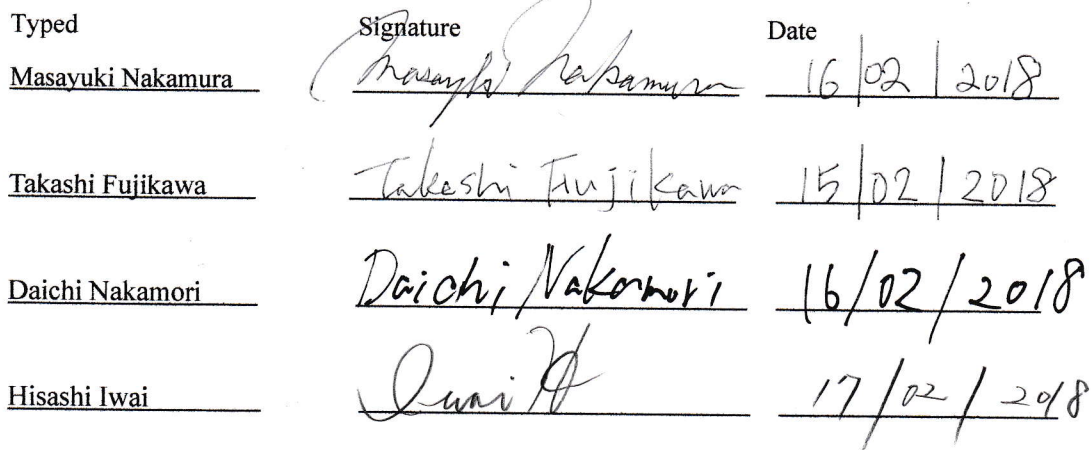 Typed Signature Date
Masayuki Nakamura Masayuki Nakamura 16/02/2018
Takashi Fujikawa Takashi Fujikawa 15/02/2018
Daichi Nakamori Daichi Nakamori 16/02/2018
Hisashi Iwai Iwai H 17/02/2018